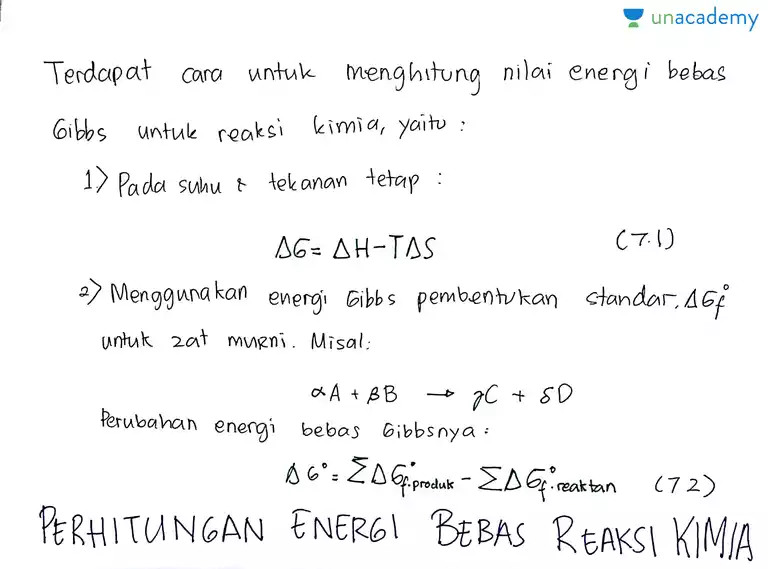 unacademy
Terdapat cara untuk menghitung nilai energi bebas
Gibbs untuk reaksi kimia, yaitu :
1) Pada suhu & tekanan tetap :
ΔG = ΔH - TΔS (7.1)
2) Menggunakan energi Gibbs pembentukan standar, ΔGf°
untuk zat murni. Misal:
αA + βB → γC + δD
Perubahan energi bebas Gibbsnya :
ΔG° = ΣΔGf° produk - ΣΔGf° reaktan (7.2)
PERHITUNGAN ENERGI BEBAS REAKSI KIMIA